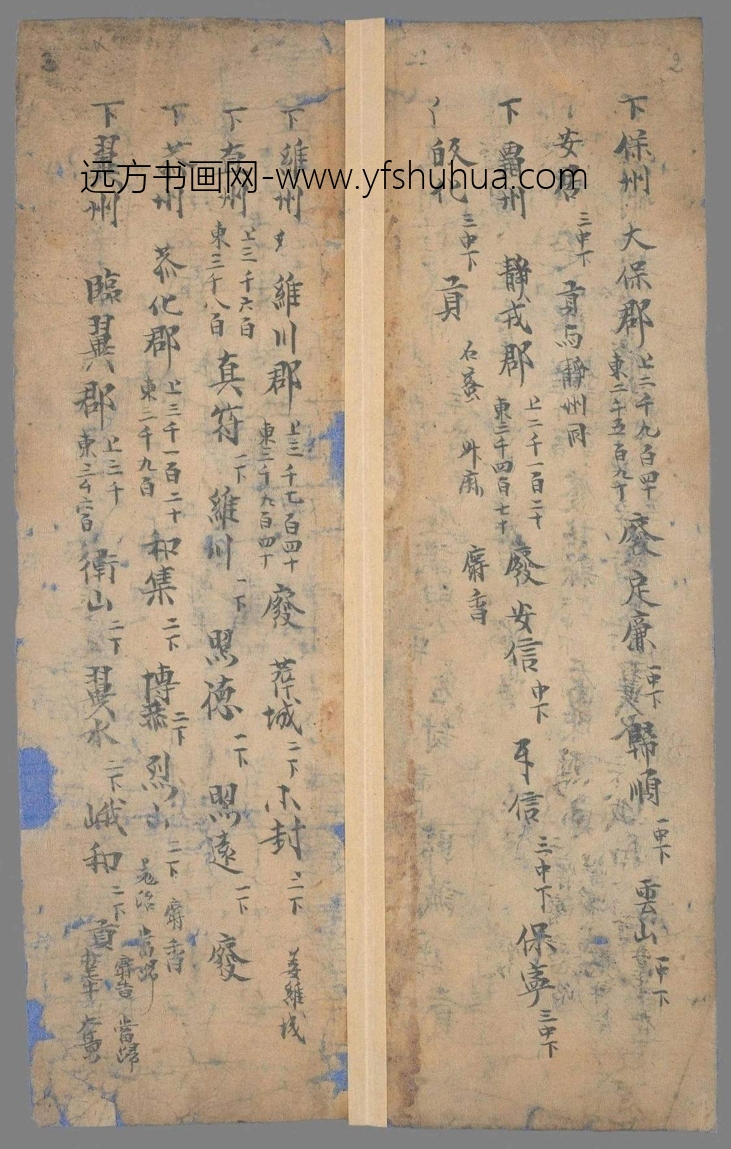 2
下 保州 大保郡 上二千九百四十 東二千五百九十 廢 定廉 一中下 歸順 一中下 雲山 一中下
安居 三中下 貢与靜州同
下 州 靜戎郡 上二千一百二十 東三千四百七十 廢 安信 中下 牙信 三中下 保寧 三中下
三中下 貢 石蜜 升麻 麝香
3
下 維州 維川郡 上三千七百四十 東三千九百四十 廢 城 二下 小封 二下 姜維城
下 州 上三千六百 東三千八百 真符 一下 維川 一下 照德 一下 照遠 一下 廢
下 州 恭化郡 上三千一百二十 東三千九百 和集 二下 博恭 二下 烈山 二下 麝香 當歸
下 翼州 臨翼郡 上三千 東三千六百 衛山 二下 翼水 二下 峨和 二下 貢 麝香 當歸
远方书画网-www.yfshuhua.com